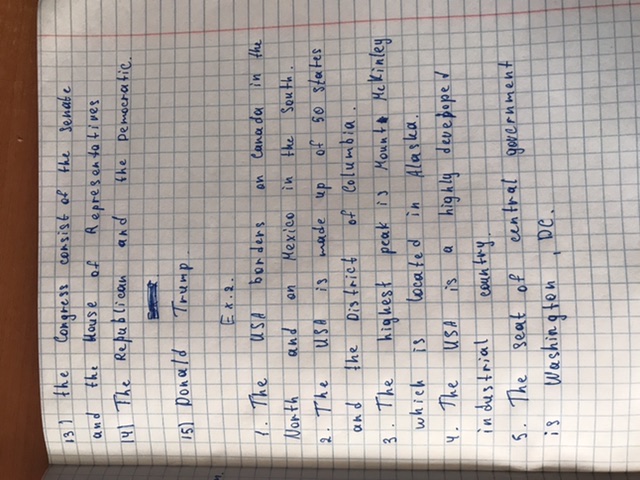 13) the Congress consist of the Senate
and the House of Representatives
14) The Republican and the Democratic.
15) Donald Trump.
Ex. 2.
1. The USA borders on Canada in the
North and on Mexico in the South.
2. The USA is made up of 50 states
and the District of Columbia.
3. The highest peak is Mount McKinley
which is located in Alaska.
4. The USA is a highly developed
industrial country.
5. The seat of central government
is Washington, DC.